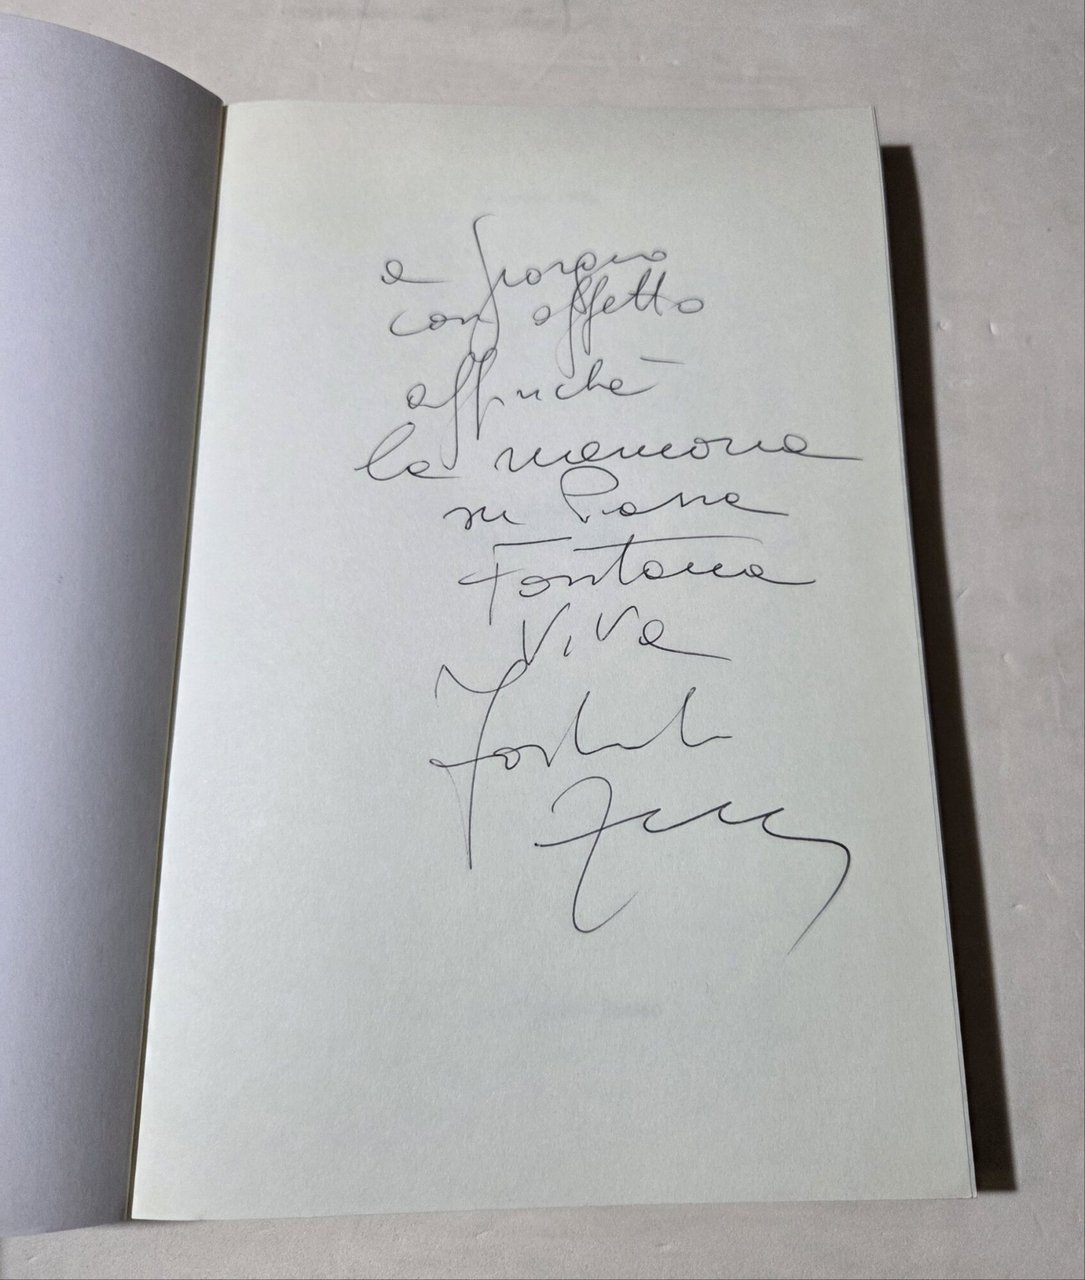 a Giorgio
con affetto
affinché
la memoria
su Piazza
Fontana
viva